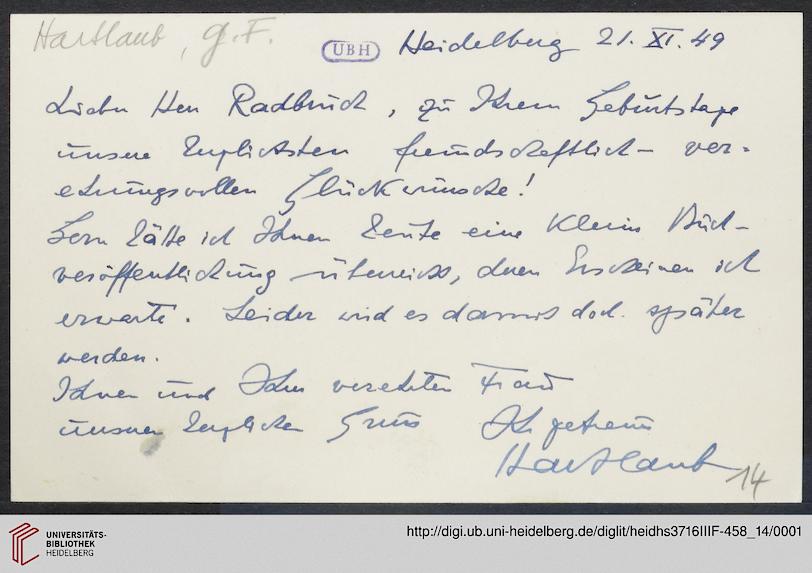 Hartlaub, G. F.
UBH Heidelberg 21. XI. 49
Lieber Herr Radbruch, zu Ihrem Geburtstage
unsere herzlichsten freundschaftlich- ver-
ehrungsvollen Glückwünsche!
Gern hätte ich Ihnen heute eine kleine Buch-
veröffentlichung überreicht, deren Erscheinen ich
erwarte. Leider wird es damit doch später
werden.
Ihnen und Ihrer verehrten Frau
unseren herzlichen Gruss Ihr getreuer
Hartlaub
14
UNIVERSITÄTS-
BIBLIOTHEK
HEIDELBERG
http://digi.ub.uni-heidelberg.de/diglit/heidhs3716IIIF-458_14/0001